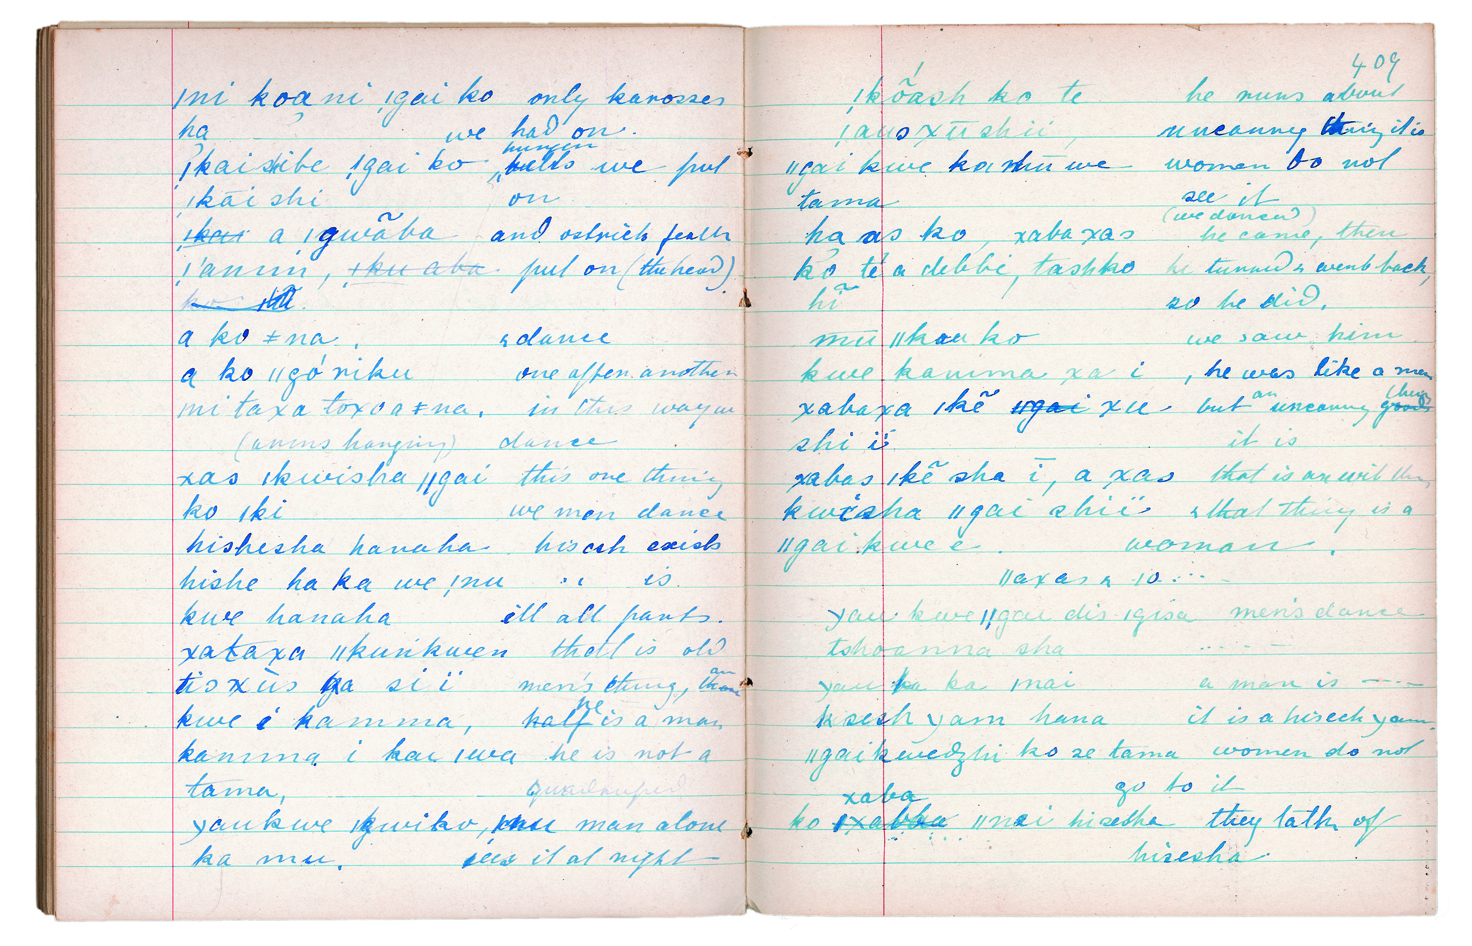 ǀni koa ni ǃgai ko only karosses
ha we had on.
hungin
ǃkaishibe ǃgai ko we put
ǃkāi shi on
a ǀgwãba and ostrich feath
ǃ'amm, put on (the head)
a ko ǂna, & dance
a ko ǁgóriku one after another
mi taxa toxoa ǂna, in this way we
(arms hanging) dance
xas ǀkwisha ǁgai this one thing
ko ǀki we men dance
hishesha hanaha hisesh exists
hishe ha ka we ǀnu ,, is
kwe hanaha ill all parts.
xataxa ǁkurikwen that is old
tisxūs ǂa si ï men's thing,
he
kwe i kamma, half is a man
kamma i kau ǀwa he is not a
tama, quadruped
yaukwe ǀgwiko, man alone
ka mu. sees it at night
409
ǃkõash ko te he runs about
ǃaus xū shii, uncanny thing it is
ǁgai kwe ka mū we women do not
tama see it
(we danced)
ha as ko, xabaxas he came, then
ko té a debbi, tashko he turned & went back,
hĩ so he did.
mū ǁkau ko we saw him
kwe kamma xa i , he was like a man
xabaxa ǀkẽ xu but an uncanny
shi ï it is
xabas ǀkẽ sha ī, a xas that is an evil
kwisha ǁgai shiï & that thing is a
ǁgai kwe e. woman.
ǁaxas & 10 . . .
yau kwe ǁgau dis ǀgisa men's dance
tshoanna sha . . . . .
yau ka ǀnai a man is —
k sesh yam hana it is a hisesh yam
ǁgaikwedzhi ko se tama women do not
xaba go to it
ko ǁnai hisesha they talk of
hisesha